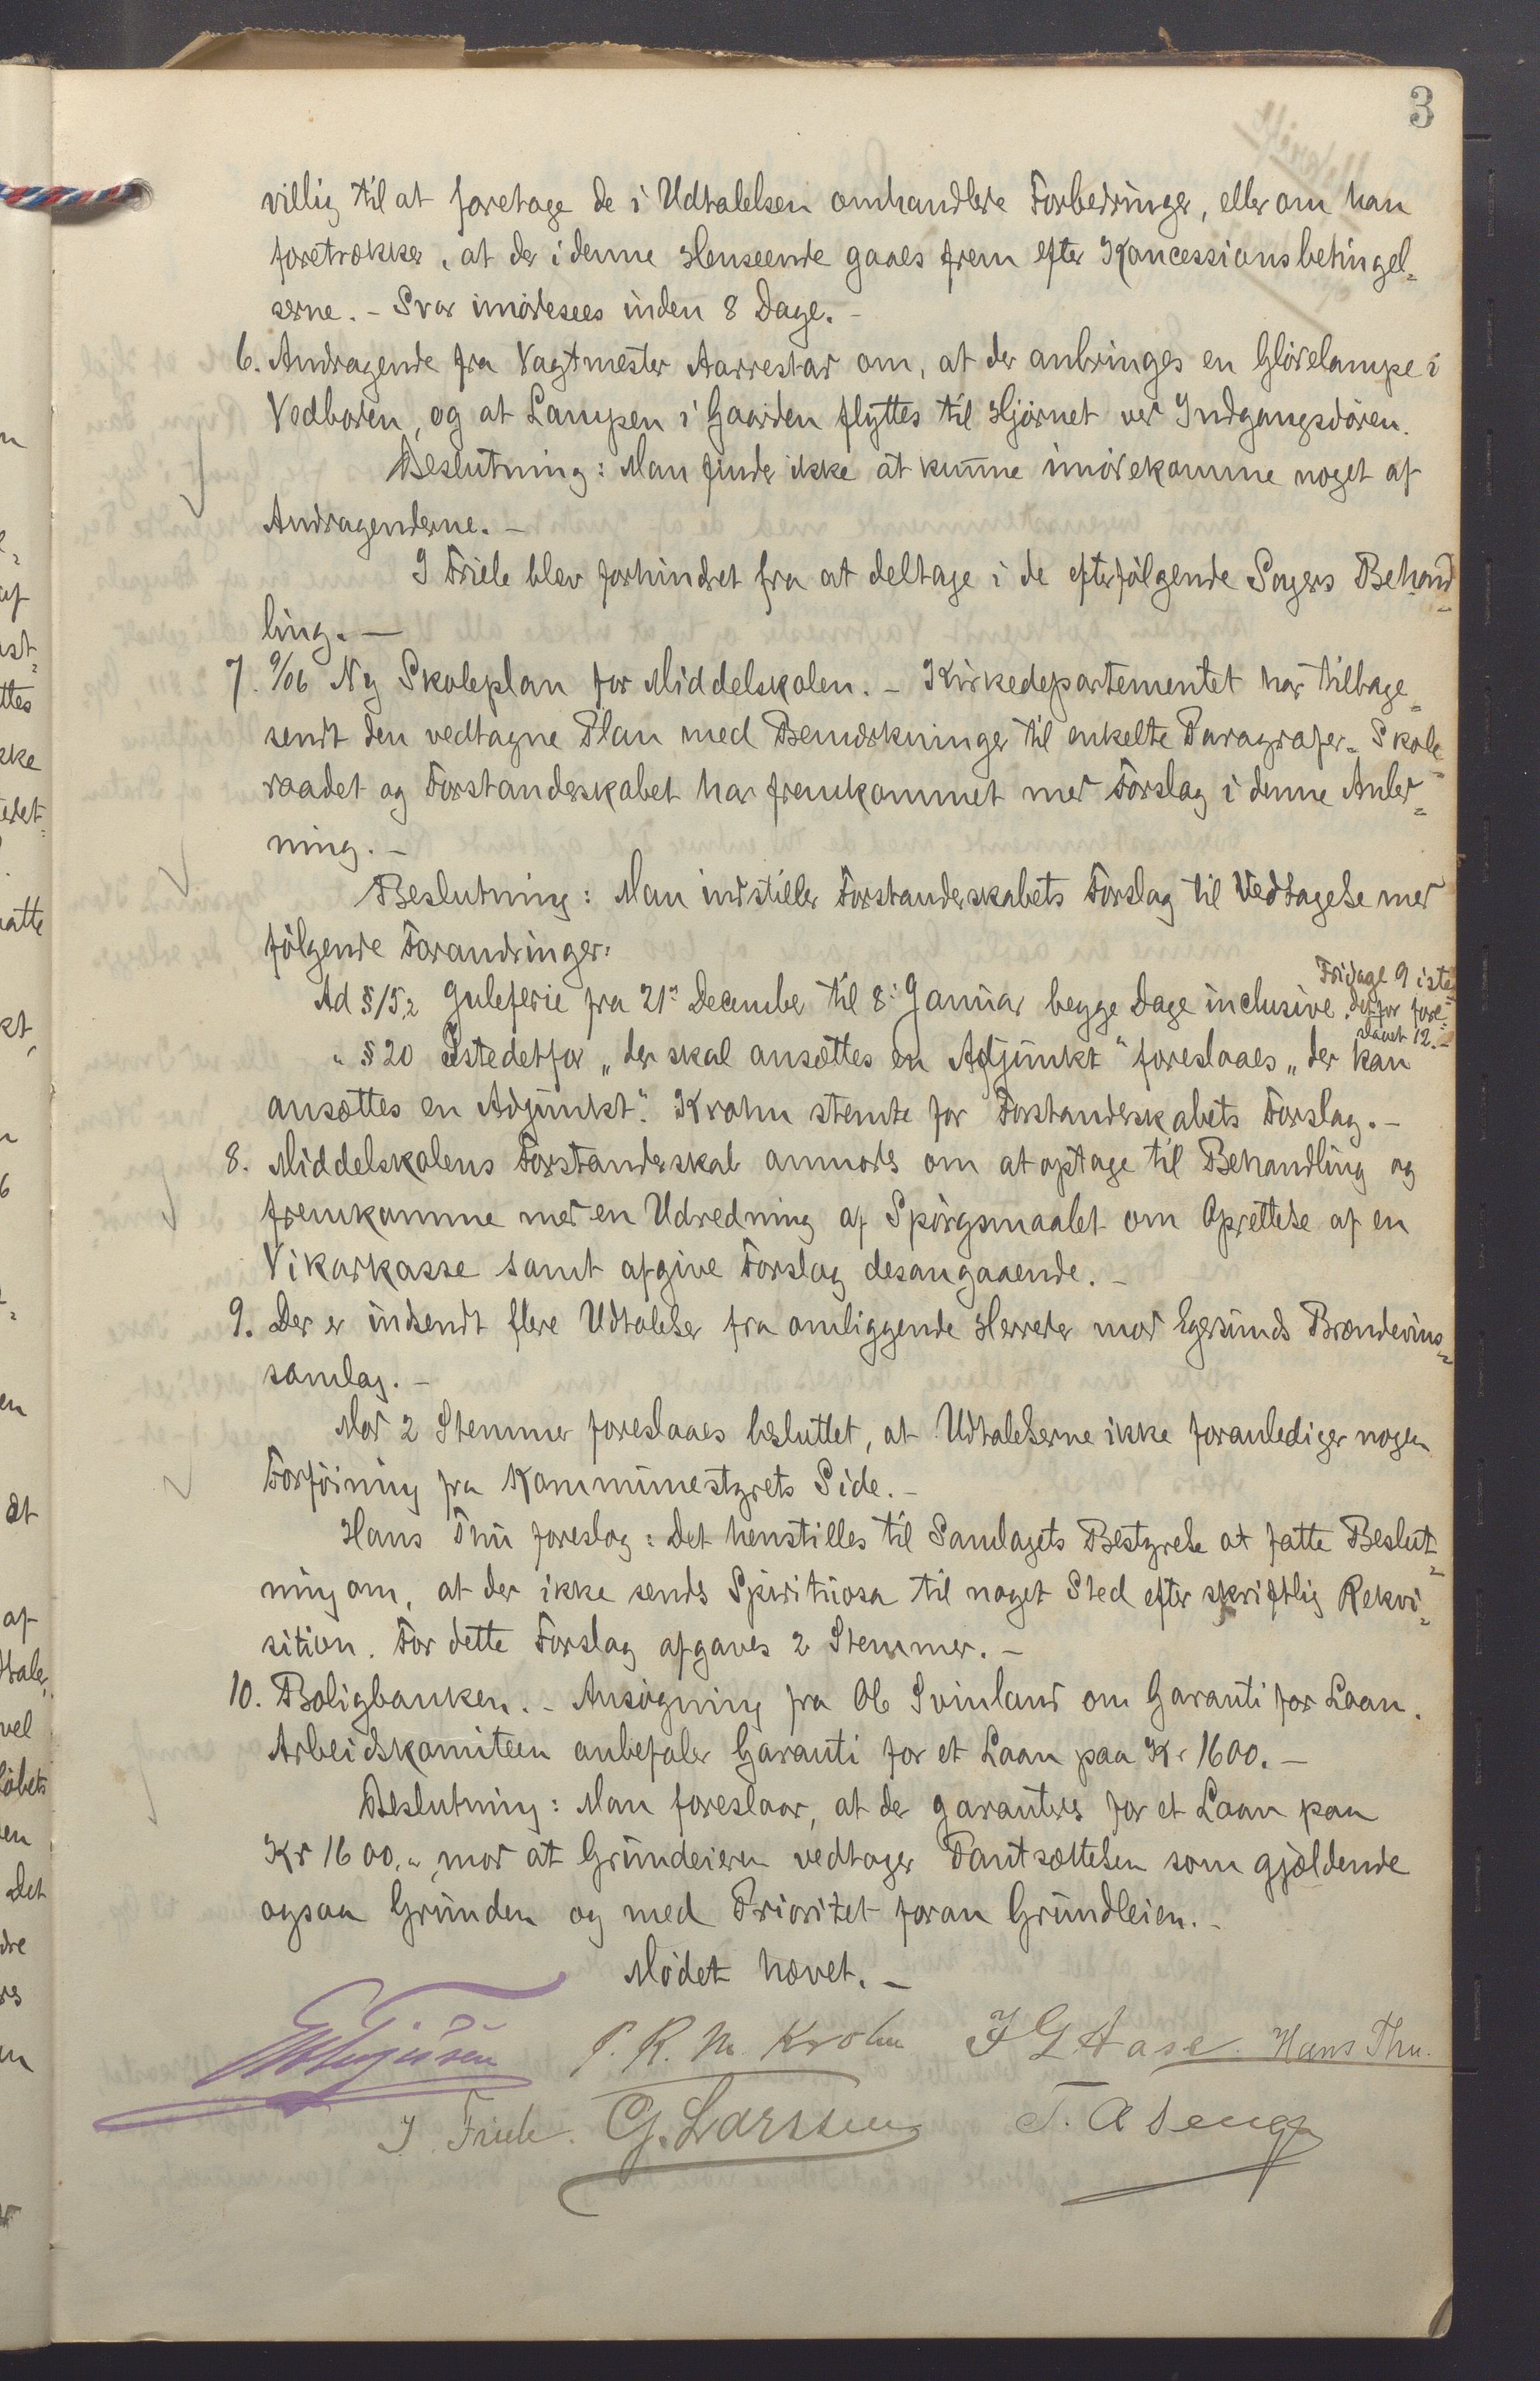 3
villig til at foretage de i Udtalelsen omhandlede Forbedringer, eller om han
foretrækker, at der i denne Henseende gaaes frem efter Koncessionsbetingel-
serne. - Svar imødesees inden 8 Dage. -
6. Andragende fra Vagtmester Aarrestad om, at der anbringes en Glødelampe i
Vedboden, og at Lampen i Gaarden flyttes til Hjørnet ved Indgangsdøren.
Beslutning: Man finder ikke at kunne imødekomme noget af
Andragenderne. -
I Friele blev forhindret fra at deltage i de efterfølgende Sagers Behand
ling. -
7. 9/06 Ny Skoleplan for Middelskolen. - Kirkedepartementet har tilbage-
sendt den vedtagne Plan med Bemærkninger til enkelte Paragrafer. Skole-
raadet og Forstanderskabet har fremkommet med Forslag i denne Anled-
ning. -
Beslutning: Man indstiller Forstanderskabets Forslag til Vedtagelse med
følgende Forandringer:
Ad § 15,2 Juleferie fra 21de December til 8: Januar begge Dage inclusive. Fridage 9 iste-
detfor fore-
slaaet 12. -
" § 20 Istedetfor "der skal ansættes en Adjunkt" foreslaaes "der kan
ansættes en Adjunkt". Krohn stemte for Forstanderskabets Forslag. -
8. Middelskolens Forstanderskab anmodes om at optage til Behandling og
fremkomme med en Udredning af Spørgsmaalet om Oprettelse af en
Vikarkasse samt afgive Forslag desangaaende. -
9. Der er indsendt flere Udtalelser fra omliggende Herreder mod Egersunds Brændevins-
samlag. -
Mod 2 Stemmer foreslaaes besluttet, at Udtalelserne ikke foranlediger nogen
Forføining fra Kommunestyrets Side. -
Hans Thu foreslog: Det henstilles til Samlagets Bestyrelse at fatte Beslut-
ning om, at der ikke sendes Spirituosa til noget Sted efter skriftlig Rekvi-
sition. For dette Forslag afgaves 2 Stemmer. -
10. Boligbanken. - Ansøgning fra Ob Svinland om Garanti for Laan.
Arbeidskomiteen anbefaler Garanti for et Laan paa Kr 1600. -
Beslutning: Man foreslaar, at der garanteres for et Laan paa
Kr 1600," mod at Grundeieren vedtager Pantsættelsen som gjældende
ogsaa Grunden og med Prioritet foran Grundleien. -
Mødet hævet. -
P. R. M. Krohn J G Aase. Hans Thu.
I. Friele. G. Larssen T. Aseng